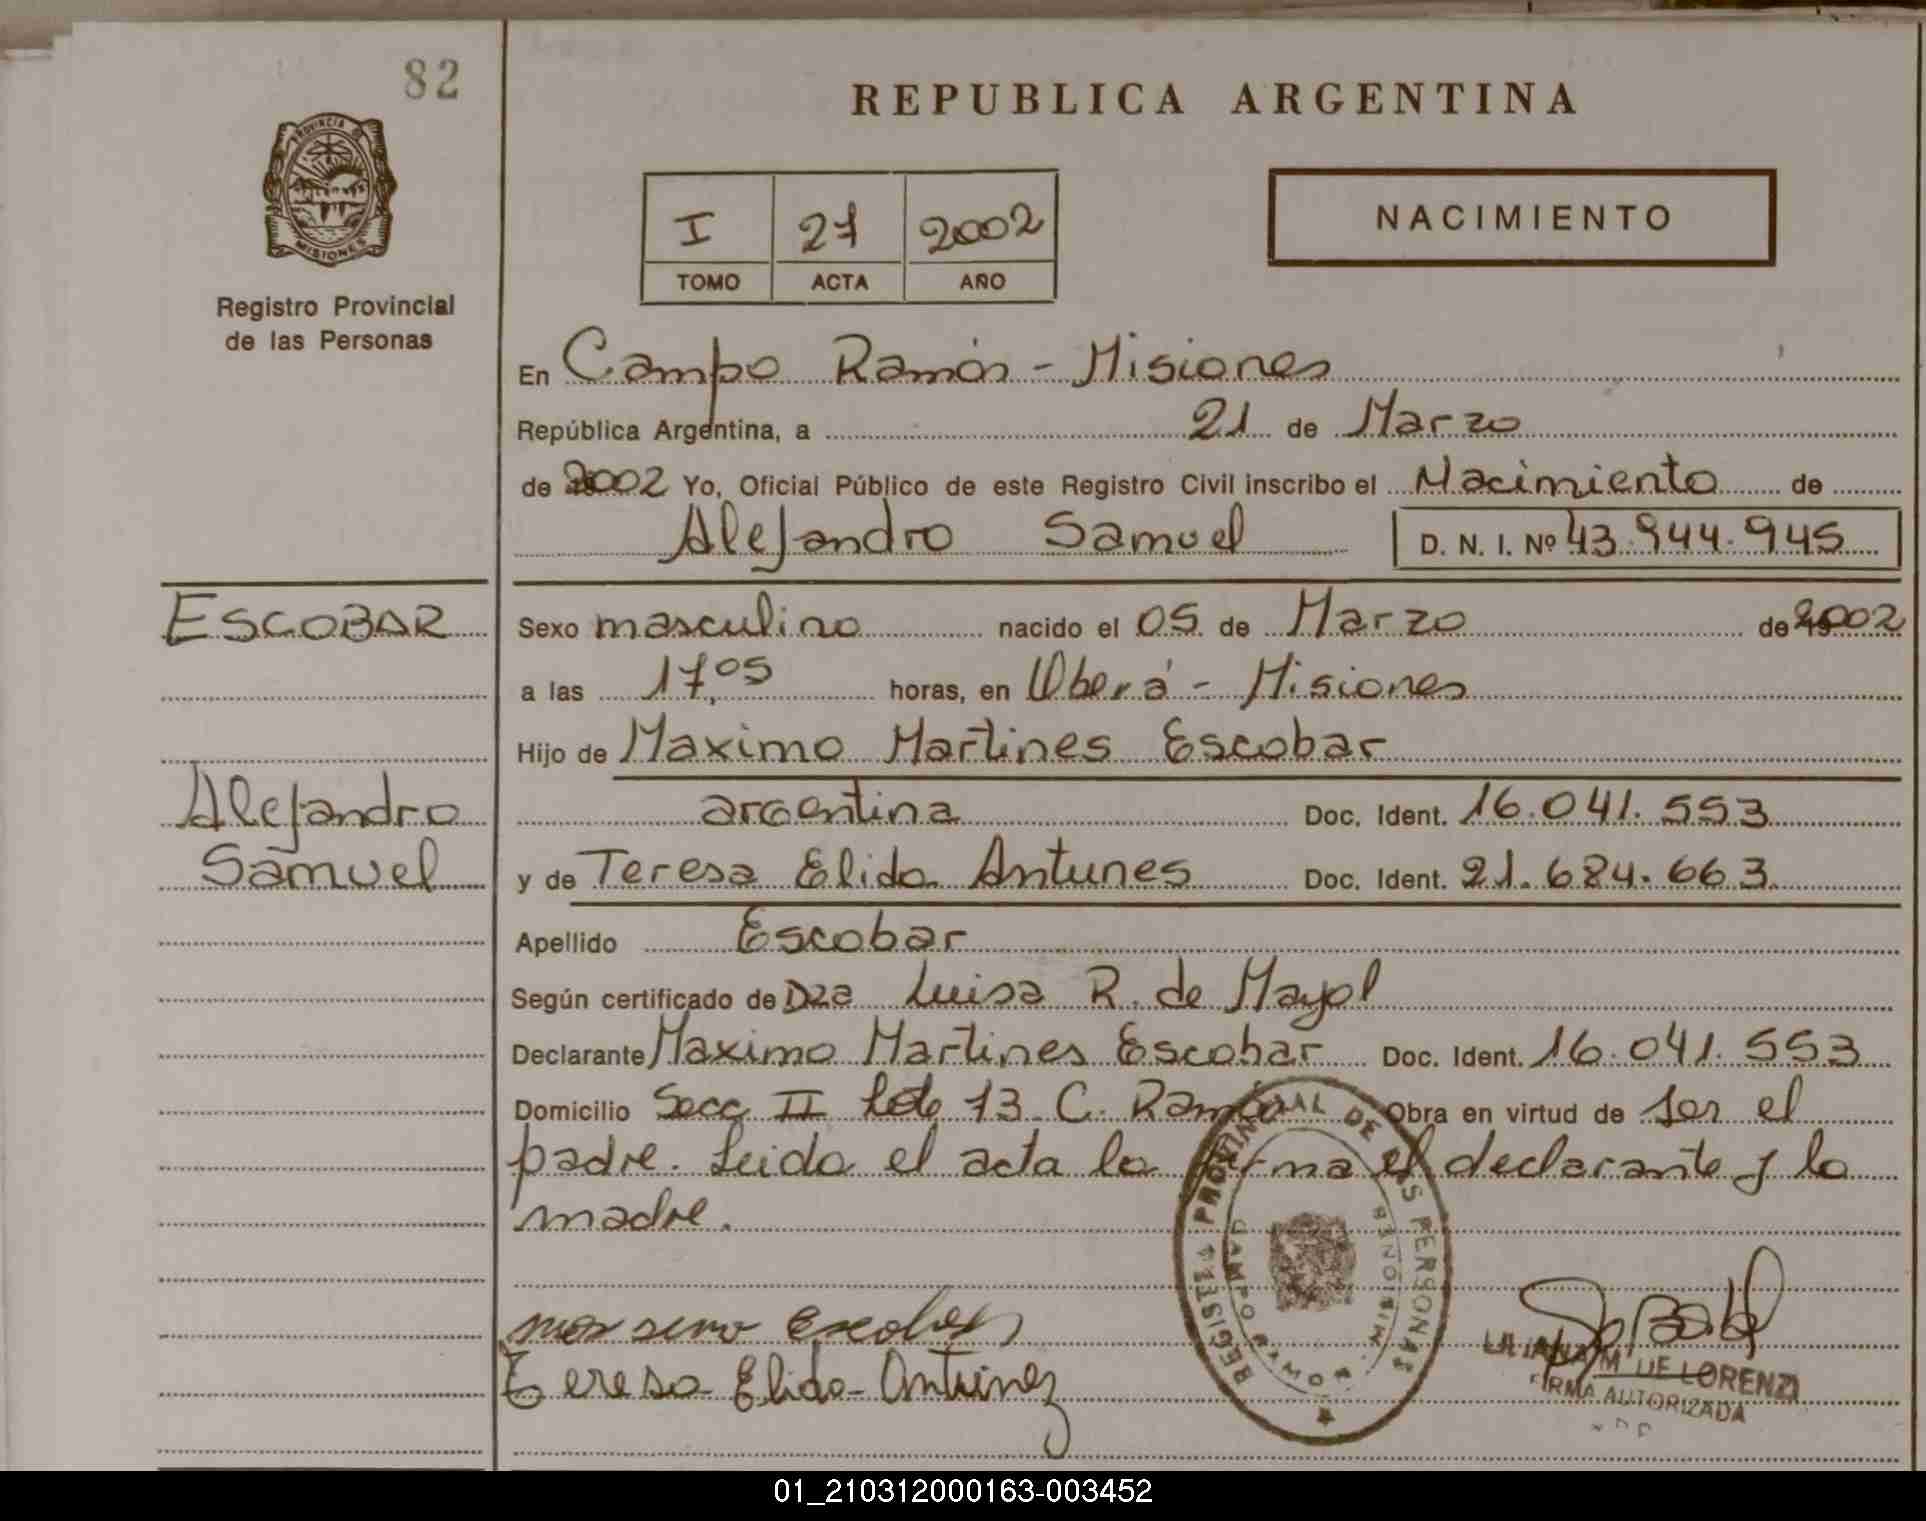 82
REPUBLICA ARGENTINA
PROVINCIA DE
MISIONES
Registro Provincial
de las Personas
I 27 2002
TOMO ACTA AÑO
NACIMIENTO
En Campo Ramón - Misiones
República Argentina, a 21 de Marzo
de 2002 Yo, Oficial Público de este Registro Civil inscribo el Nacimiento de
Alejandro Samuel D. N. I. Nº 43.944.945
ESCOBAR
Sexo masculino nacido el 05 de Marzo de 2002
a las 17,05 horas, en Oberá - Misiones
Hijo de Maximo Martines Escobar
Alejandro
argentina Doc. Ident. 16.041.553
Samuel
y de Teresa Elida Antunes Doc. Ident. 21.684.663
Apellido Escobar
Según certificado de Dra Luisa R. de Mayol
Declarante Maximo Martines Escobar Doc. Ident. 16.041.553
Domicilio Secc II Lote 13 C. Ramón Obra en virtud de ser el
padre. Leida el acta la firma el declarante y la
madre.
REGISTRO PROVINCIAL DE LAS PERSONAS
CAMPO RAMON
MISIONES
Escobar
Teresa Elida Antunez
LILIANA M. DE LORENZI
FIRMA AUTORIZADA
01_210312000163-003452